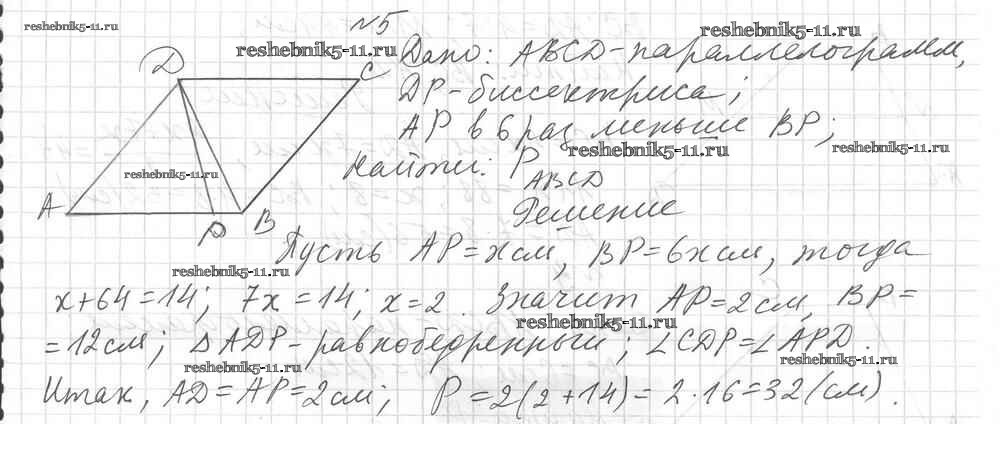 reshebnik5-11.ru
№5
reshebnik5-11.ru
reshebnik5-11.ru
Дано: ABCD - параллелограмм,
D
C
DP - биссектриса;
AP в 6 раз меньше BP;
reshebnik5-11.ru
reshebnik5-11.ru
Найти: P ABCD
reshebnik5-11.ru
A
P
B
Решение
Пусть AP = x см, BP = 6x см, тогда
reshebnik5-11.ru
x + 64 = 14; 7x = 14; x = 2. Значит AP = 2 см, BP =
reshebnik5-11.ru
= 12 см; △ADP - равнобедренный; ∠CDP = ∠APD.
reshebnik5-11.ru
reshebnik5-11.ru
Итак, AD = AP = 2 см; P = 2(2 + 14) = 2 · 16 = 32 (см).